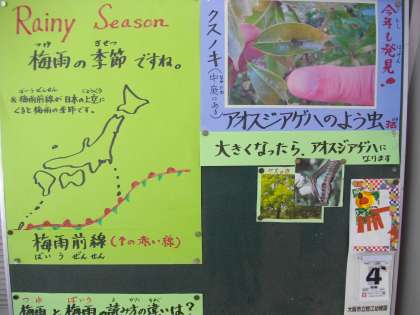 Rainy Season
つゆ きせつ
梅雨の季節ですね。
ばいうぜんせん じょうくう
※梅雨前線が日本の上空に
くると梅雨の季節です。
梅雨前線(↑の赤い線)
ばいう ぜんせん
つゆ ばいう かた ちが
梅雨と梅雨の読み方の違いは?
クスノキ
(中庭にある)
今年も発見!
アオスジアゲハのよう虫
大きくなったら、アオスジアゲハに
なります
4